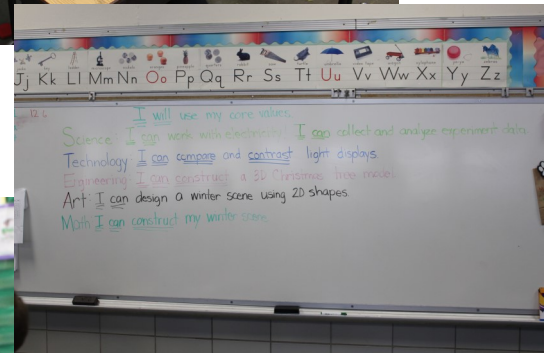 Jj Kk Ll Mm Nn Oo Pp Qq Rr Ss Tt Uu Vv Ww Xx Yy Zz
I will use my core values.
Science: I can work with electricity. I can collect and analyze experiment data.
Technology: I can compare and contrast light displays.
Engineering: I can construct a 3D Christmas tree model.
Art: I can design a winter scene using 2D shapes.
Math: I can construct my winter scene.